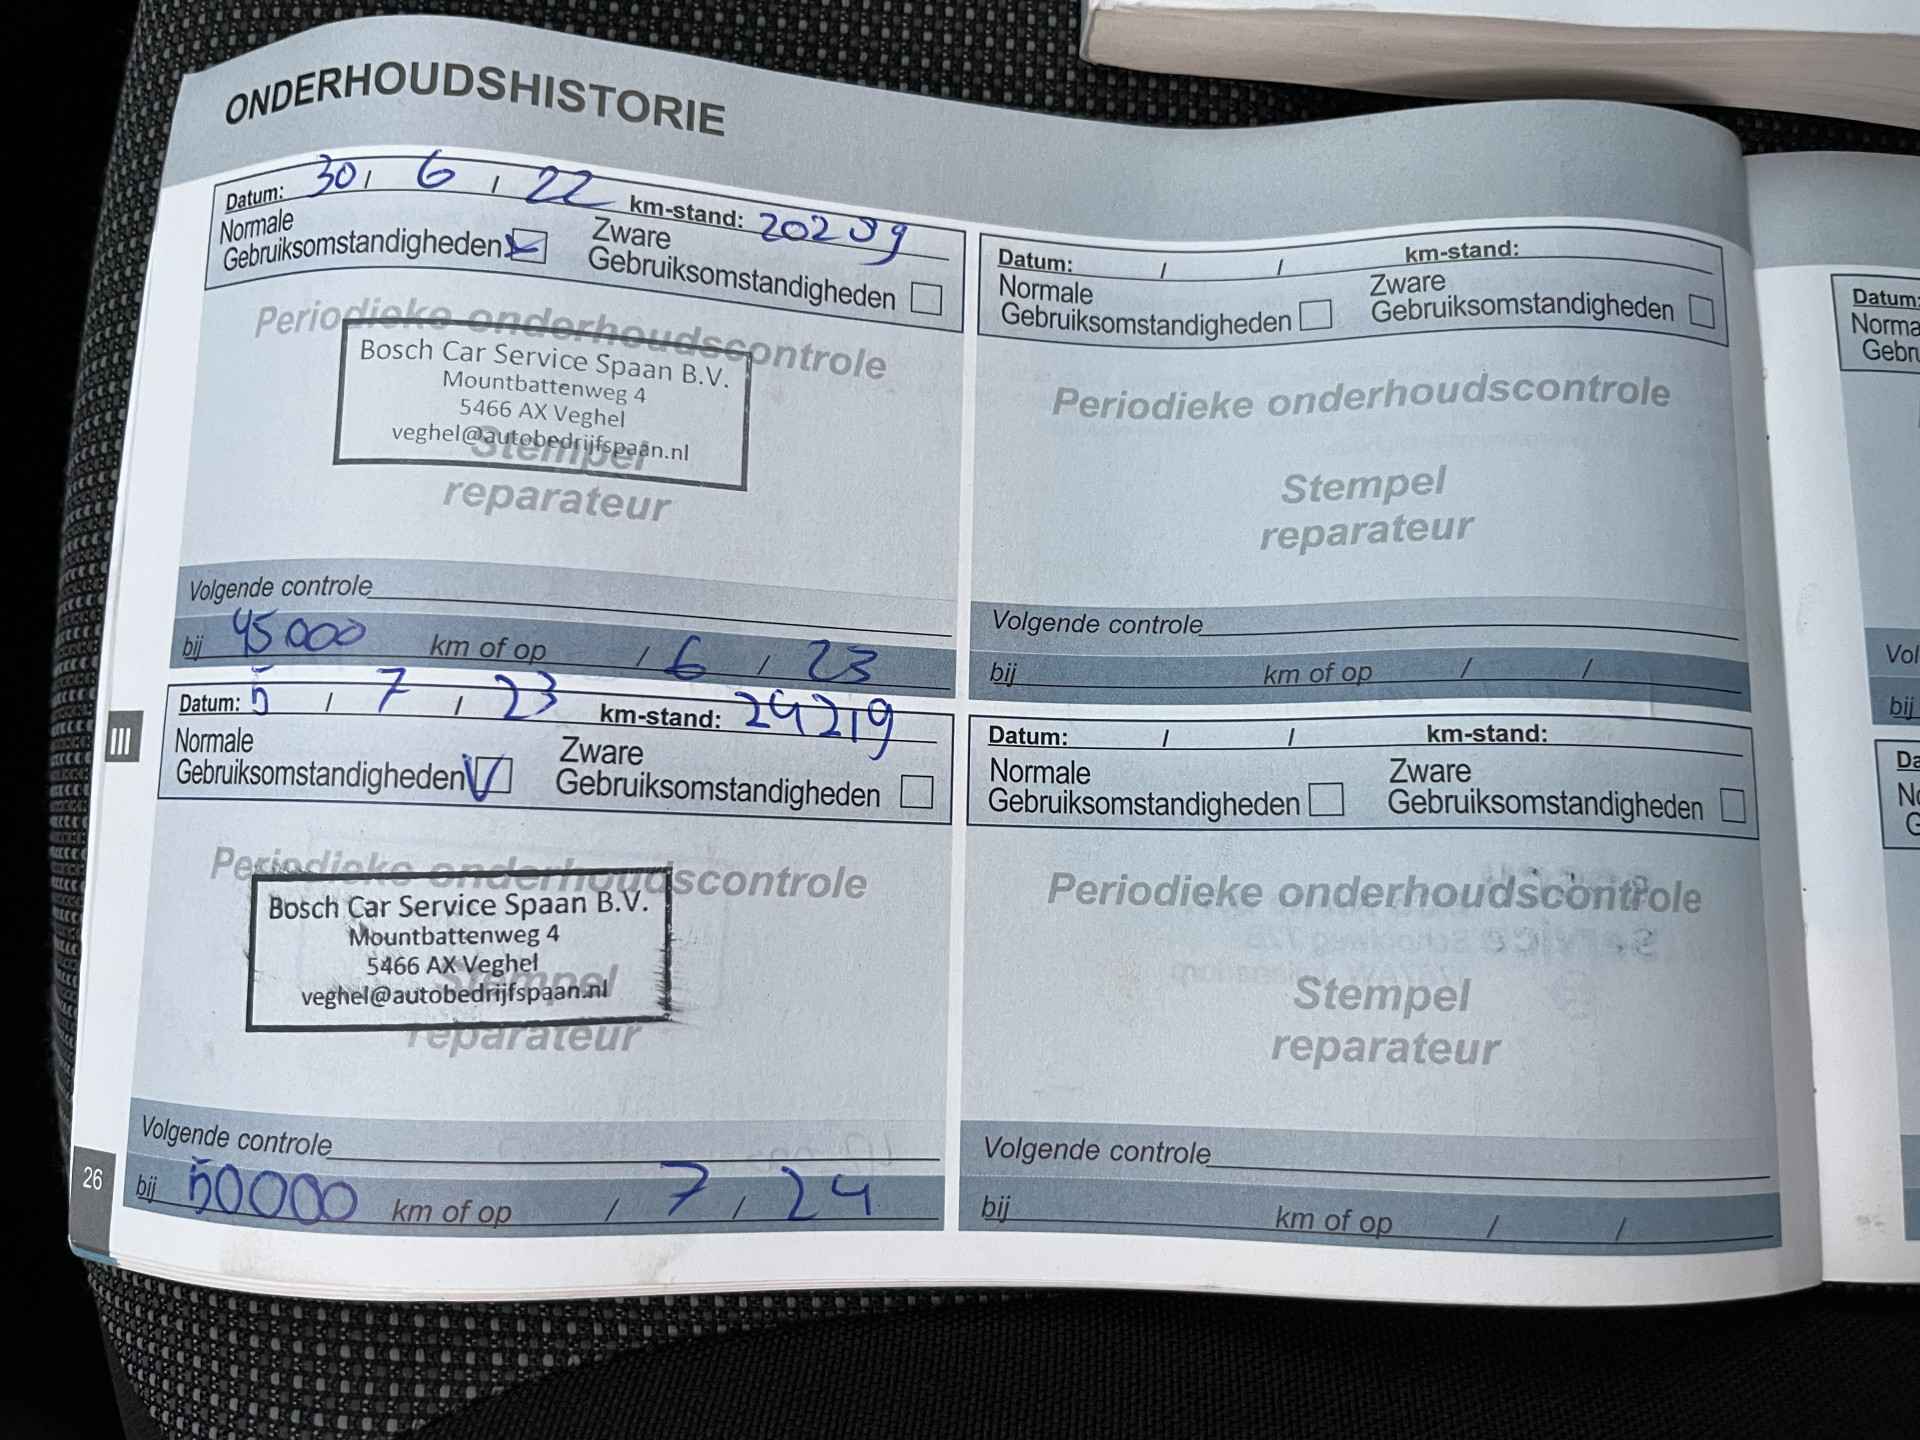 ONDERHOUDSHISTORIE
Datum: 30 / 6 / 22 km-stand: 20289
Normale
Gebruiksomstandigheden
Zware
Gebruiksomstandigheden
Periodieke onderhoudscontrole
Bosch Car Service Spaan B.V.
Mountbattenweg 4
5466 AX Veghel
veghel@autobedrijfspaan.nl
Stempel
reparateur
Volgende controle
bij 45000 km of op / 6 / 23
Datum: 5 / 7 / 23 km-stand: 24219
Normale
Gebruiksomstandigheden
Zware
Gebruiksomstandigheden
Periodieke onderhoudscontrole
Bosch Car Service Spaan B.V.
Mountbattenweg 4
5466 AX Veghel
veghel@autobedrijfspaan.nl
Stempel
reparateur
Volgende controle
bij 50000 km of op / 7 / 24
III
26
Datum: / / km-stand:
Normale
Gebruiksomstandigheden
Zware
Gebruiksomstandigheden
Periodieke onderhoudscontrole
Stempel
reparateur
Volgende controle
bij km of op / /
Datum: / / km-stand:
Normale
Gebruiksomstandigheden
Zware
Gebruiksomstandigheden
Periodieke onderhoudscontrole
Stempel
reparateur
Volgende controle
bij km of op / /
Datum:
Norma
Gebru
Vol
bij
Da
No
G